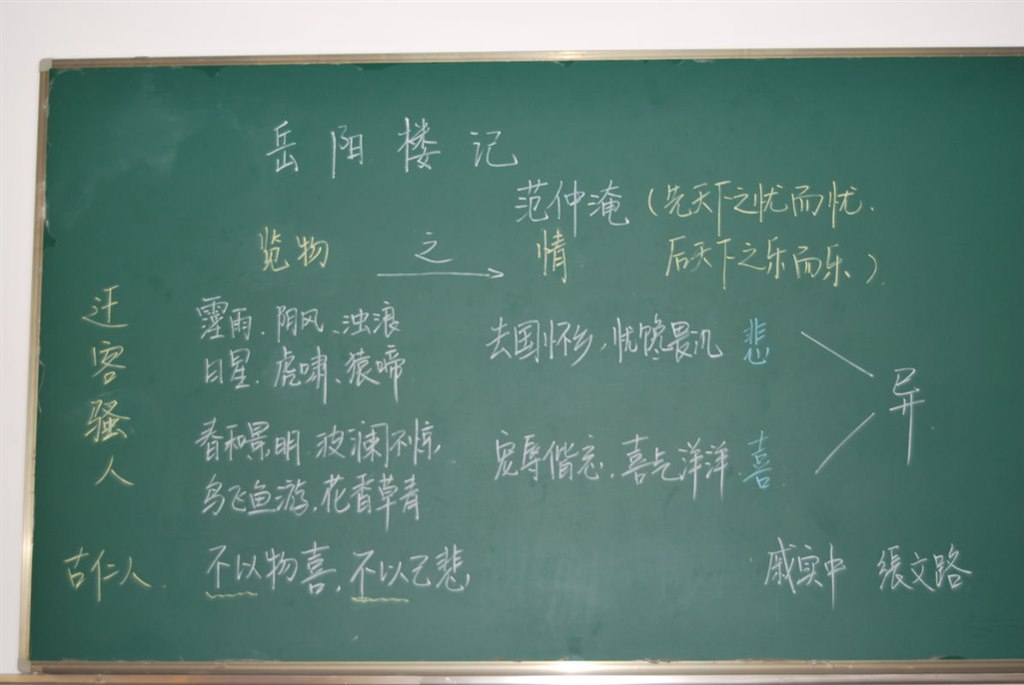 岳阳楼记
范仲淹（先天下之忧而忧.
后天下之乐而乐）
览物 之 情
迁客骚人
霪雨、阴风、浊浪
日星、虎啸、猿啼
去国怀乡，忧馋畏讥 悲
异
春和景明 波澜不惊
鸟飞鱼游、花香草青
宠辱偕忘、喜气洋洋 喜
古仁人
不以物喜，不以己悲
戚实中 張文路